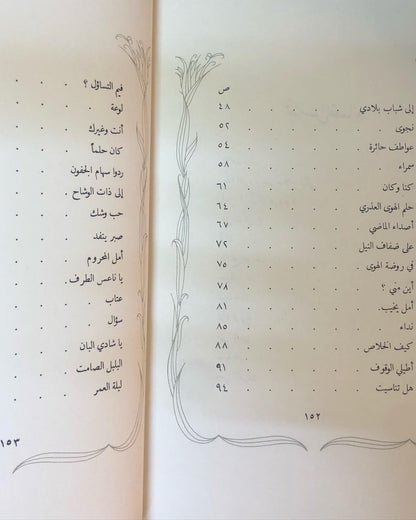 ص
إلى شباب بلادي . . . . . ٤٨
نجوى . . . . . . ٥٢
عواطف حائرة . . . . . ٥٤
سمراء . . . . . . ٥٨
كنا وكان . . . . . . ٦١
حلم الهوى العذري . . . . ٦٤
أصداء الماضي . . . . . ٦٧
على ضفاف النيل . . . . . ٧٢
في روضة الهوى . . . . . ٧٥
أين مني ؟ . . . . . ٧٨
أمل يخيب . . . . . . ٨١
نداء . . . . . . ٨٥
كيف الخلاص . . . . . ٨٨
أطيلي الوقوف . . . . . ٩١
هل تناسيت . . . . . ٩٤
١٥٢
فيم التساؤل ؟ . . .
لوعة . . . .
أنت وغيرك . . .
كان حلماً . . .
ردوا سهام الجفون . .
إلى ذات الوشاح . . .
حب وشك . . .
صبر ينفد . . .
أمل المحروم . . .
يا ناعس الطرف . . .
عتاب . . . .
سؤال . . . .
يا شادي البان . . .
البلبل الصامت . . .
ليلة العمر . . .
١٥٣